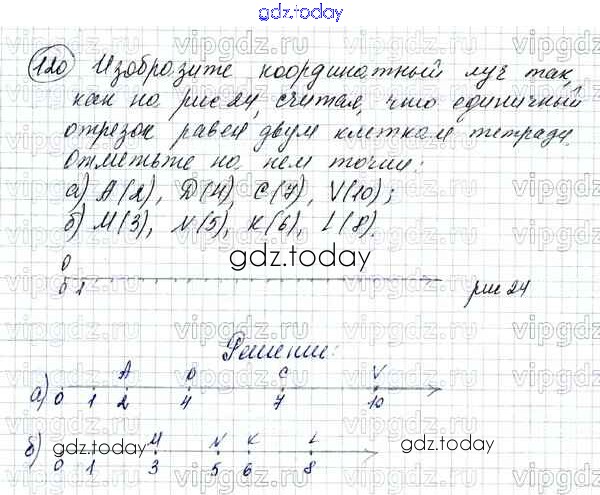 gdz.today
120 Изобразите координатный луч так,
как на рис 24, считая, что единичный
отрезок равен двум клеткам тетради.
Отметьте на нем точки:
а) А(2), D(4), С(7), V(10);
б) М(3), N(5), К(6), L(8).
gdz.today
0
0 1
рис 24
Решение:
А D С V
а) 0 1 2 4 7 10
М N К L
б) 0 1 3 5 6 8
gdz.today gdz.today
vipgdz.ru